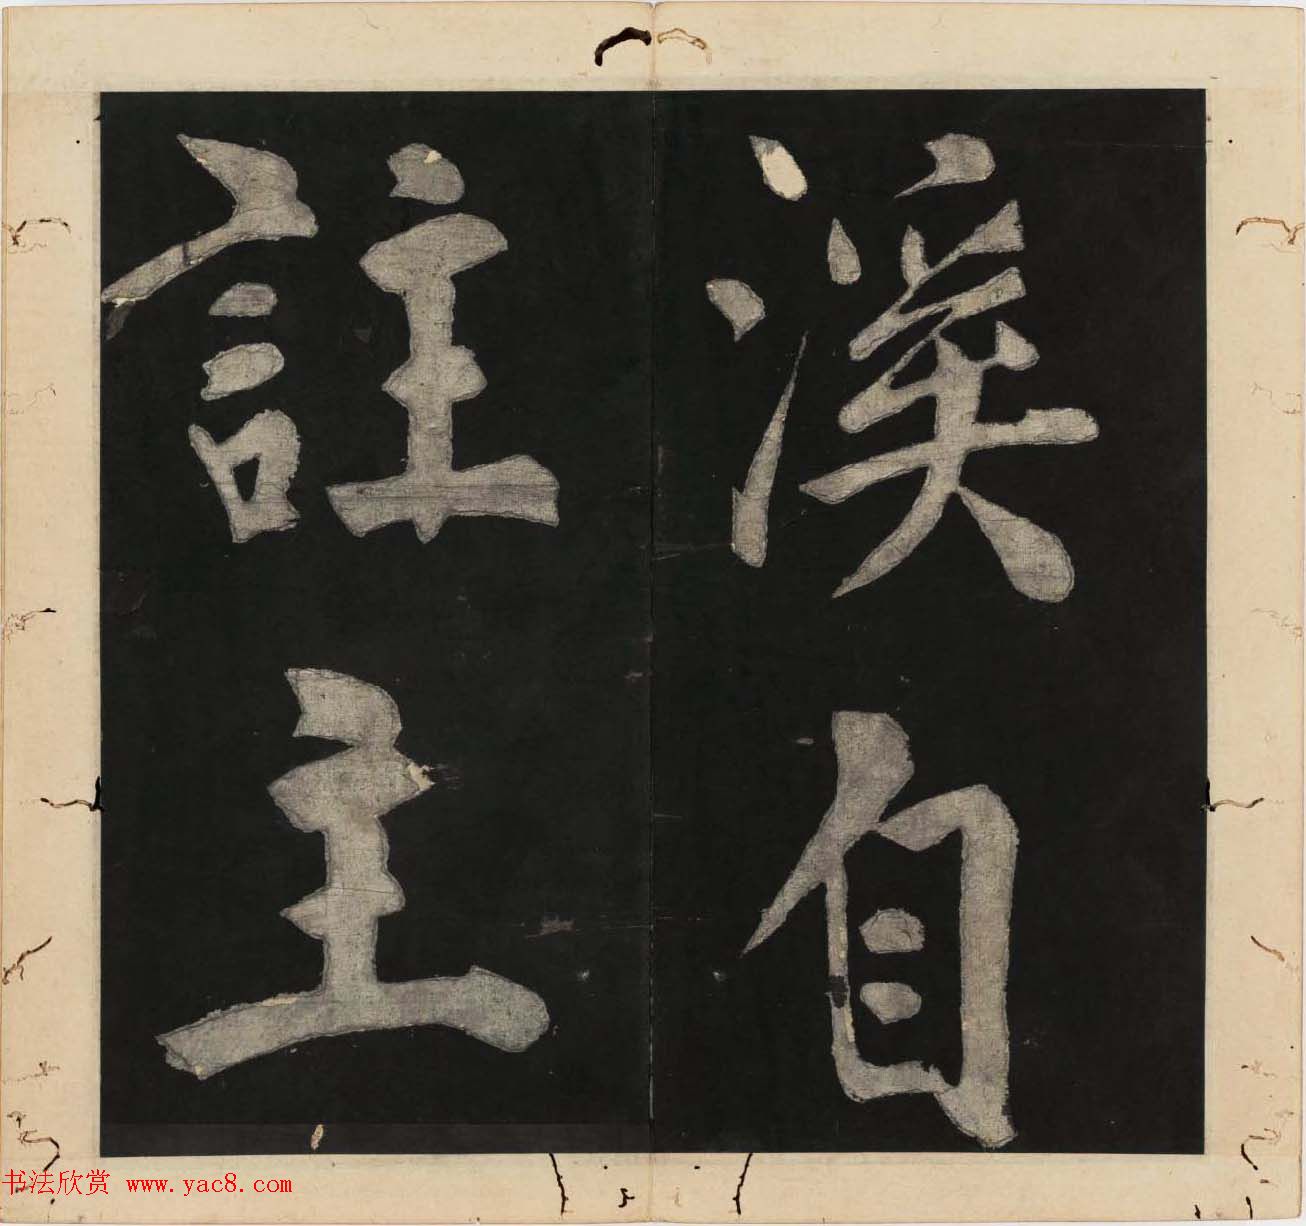 溪自
註主
书法欣赏 www.yac8.com